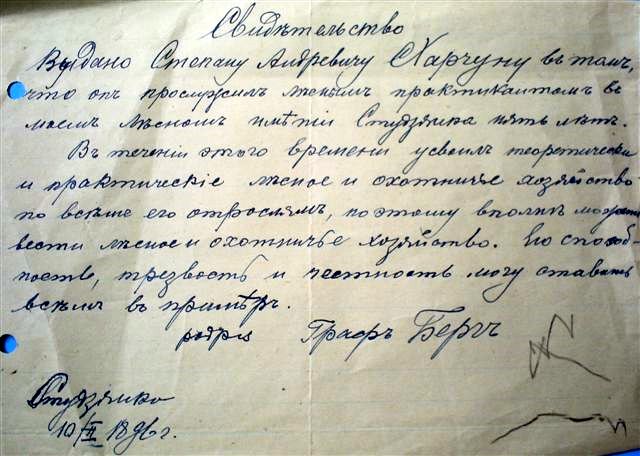 Свидѣтельство
Выдано Степану Андревичу Харчуну въ томъ,
что онъ прослужилъ лѣснымъ практикантомъ въ
моемъ лѣсномъ имѣніи Студзянка пять лѣтъ.
Въ теченіи этого времени усвоилъ теоретически
и практическіе лѣсное и охотничье хозяйство
по всѣмъ его отрослямъ, поэтому вполнѣ можетъ
вести лѣсное и охотничье хозяйство. Его способ-
ность, трезвость и честность могу ставить
всѣмъ въ примѣръ.
Графъ Бергъ
Студзянка
10/II 1896 г.